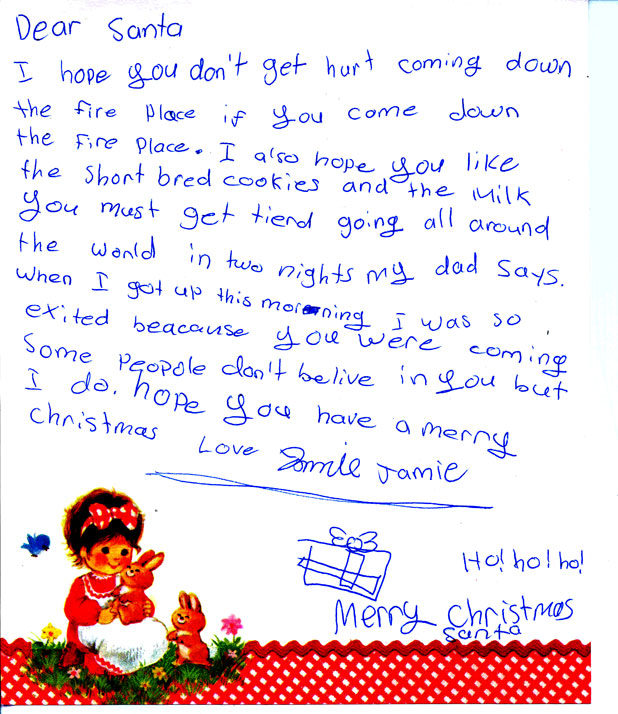 Dear Santa
I hope you don't get hurt coming down
the fire place if you come down
the fire place. I also hope you like
the short bred cookies and the milk
you must get tierd going all around
the world in two nights my dad says.
when I got up this morning I was so
exited beacause you were coming
Some peopole don't belive in you but
I do. hope you have a merry
christmas
Love Jamie Jamie
Ho! ho! ho!
Merry christmas
santa